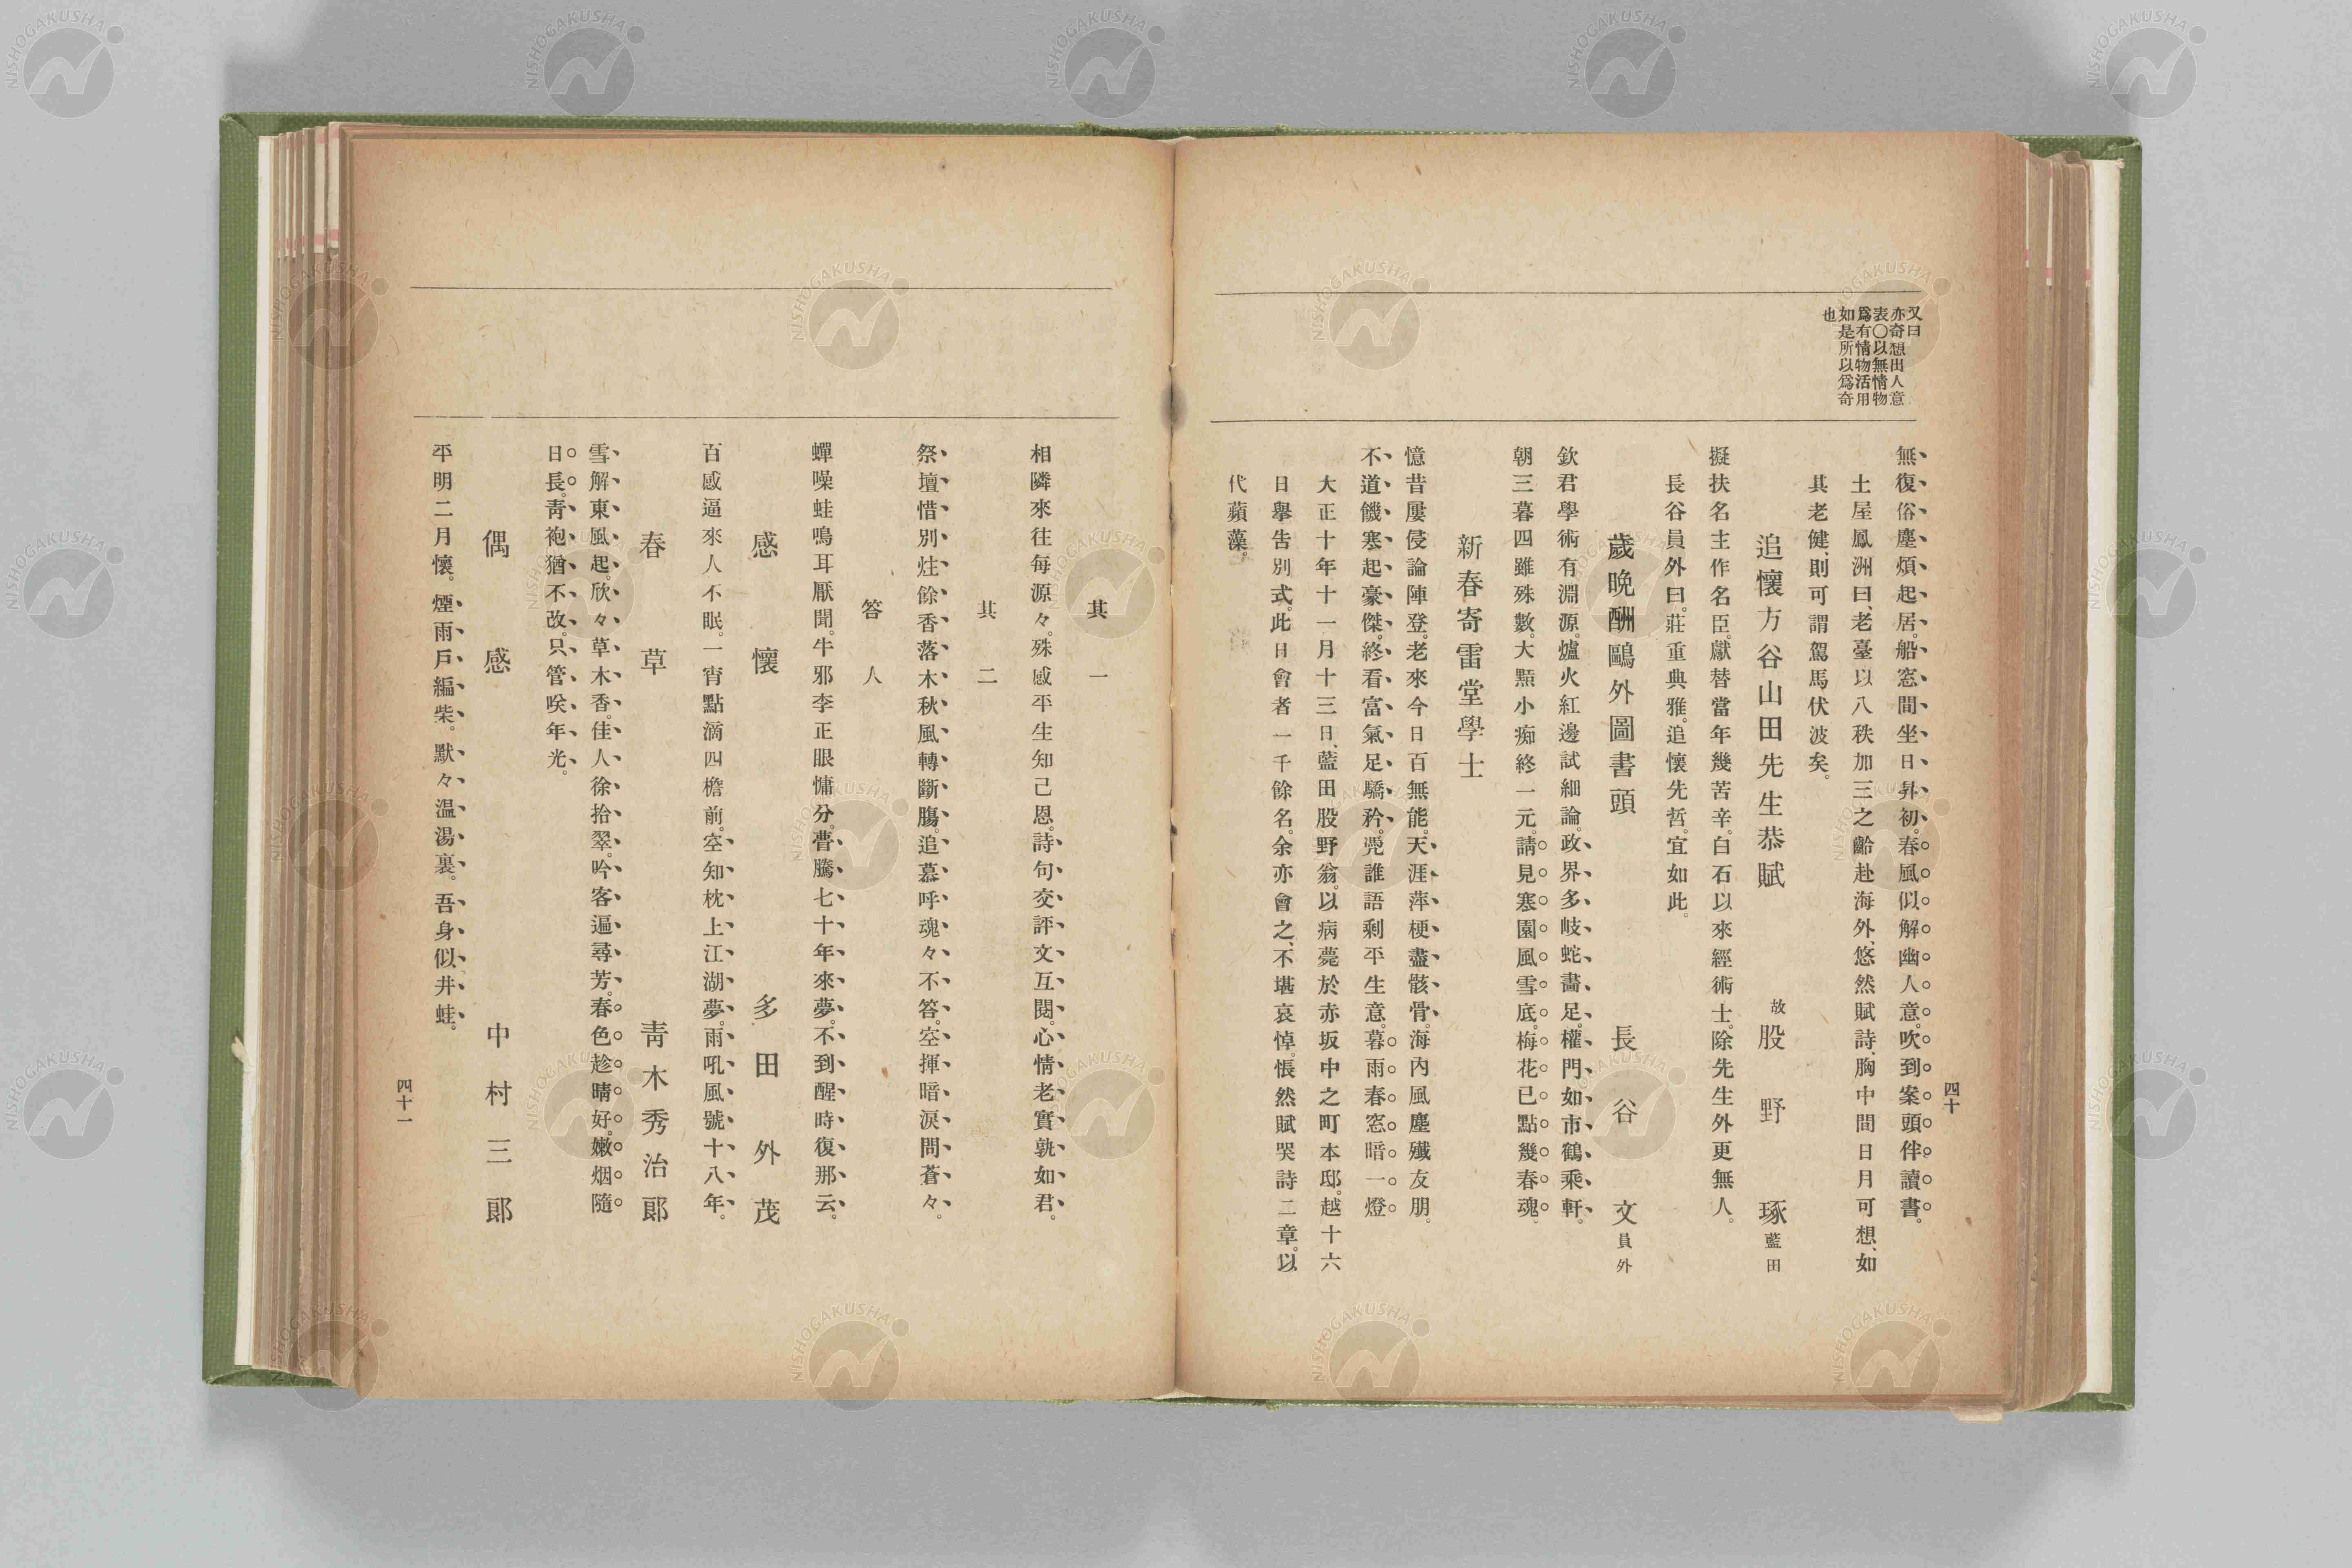 又曰
亦奇想出人意
表〇以無情物
爲有情物活用
如是所以爲奇
也
無復俗塵煩起居。船窓間坐日昇初。春風似解幽人意。吹到案頭伴讀書。
土屋鳳洲曰、老臺以八秩加三之齡赴海外、悠然賦詩、胸中間日月可想、如
其老健、則可謂駕馬伏波矣。
追懷方谷山田先生恭賦 故股野琢藍田
擬扶名主作名臣。獻替當年幾苦辛。白石以來經術士。除先生外更無人。
長谷員外曰。莊重典雅。追懷先哲。宜如此。
歲晩酬鷗外圖書頭 長谷文員外
欽君學術有淵源。爐火紅邊試細論。政界多岐蛇畵足。權門如市鶴乘軒。
朝三暮四雖殊數。大黠小痴終一元。請見寒園風雪底。梅花已點幾春魂。
新春寄雷堂學士
憶昔屢侵論陣登。老來今日百無能。天涯萍梗盡骸骨。海內風塵殲友朋。
不道饑寒起豪傑。終看富氣足驕矜。凭誰語剩平生意。暮雨春窓暗一燈。
大正十年十一月十三日、藍田股野翁。以病薨於赤坂中之町本邸。越十六
日擧告別式。此日會者一千餘名。余亦會之、不堪哀悼。悵然賦哭詩二章。以
代蘋藻。
四十
其一
相隣來往每源々。殊感平生知己恩。詩句交評文互閱。心情老實孰如君。
其二
祭壇惜別炷餘香。落木秋風轉斷膓。追慕呼魂々不答。空揮暗淚問蒼々。
答人
蟬噪蛙鳴耳厭聞。牛邪李正眼慵分。瞢騰七十年來夢。不到醒時復那云。
感懷 多田外茂
百感逼來人不眠。一宵點滴四檐前。空知枕上江湖夢。雨吼風號十八年。
春草 靑木秀治郞
雪解東風起。欣々草木香。佳人徐拾翠。吟客遍尋芳。春色趁晴好。嫩烟隨
日長。靑袍猶不改。只管唉年光。
偶感 中村三郞
平明二月懷。煙雨戶編柴。默々温湯裏。吾身似井蛙。
四十一